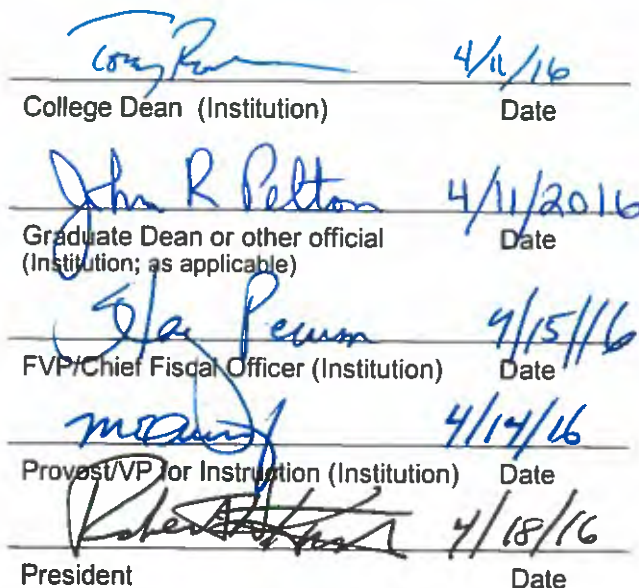 4/11/16
College Dean (Institution) Date
John R Pelton 4/11/2016
Graduate Dean or other official Date
(Institution; as applicable)
4/15/16
FVP/Chief Fiscal Officer (Institution) Date
4/14/16
Provost/VP for Instruction (Institution) Date
4/18/16
President Date